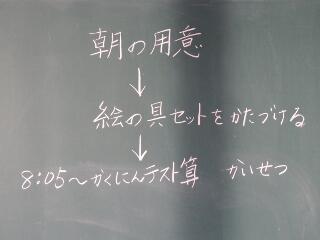 朝の用意
↓
絵の具セットをかたづける
↓
8:05～かくにんテスト算 かいせつ